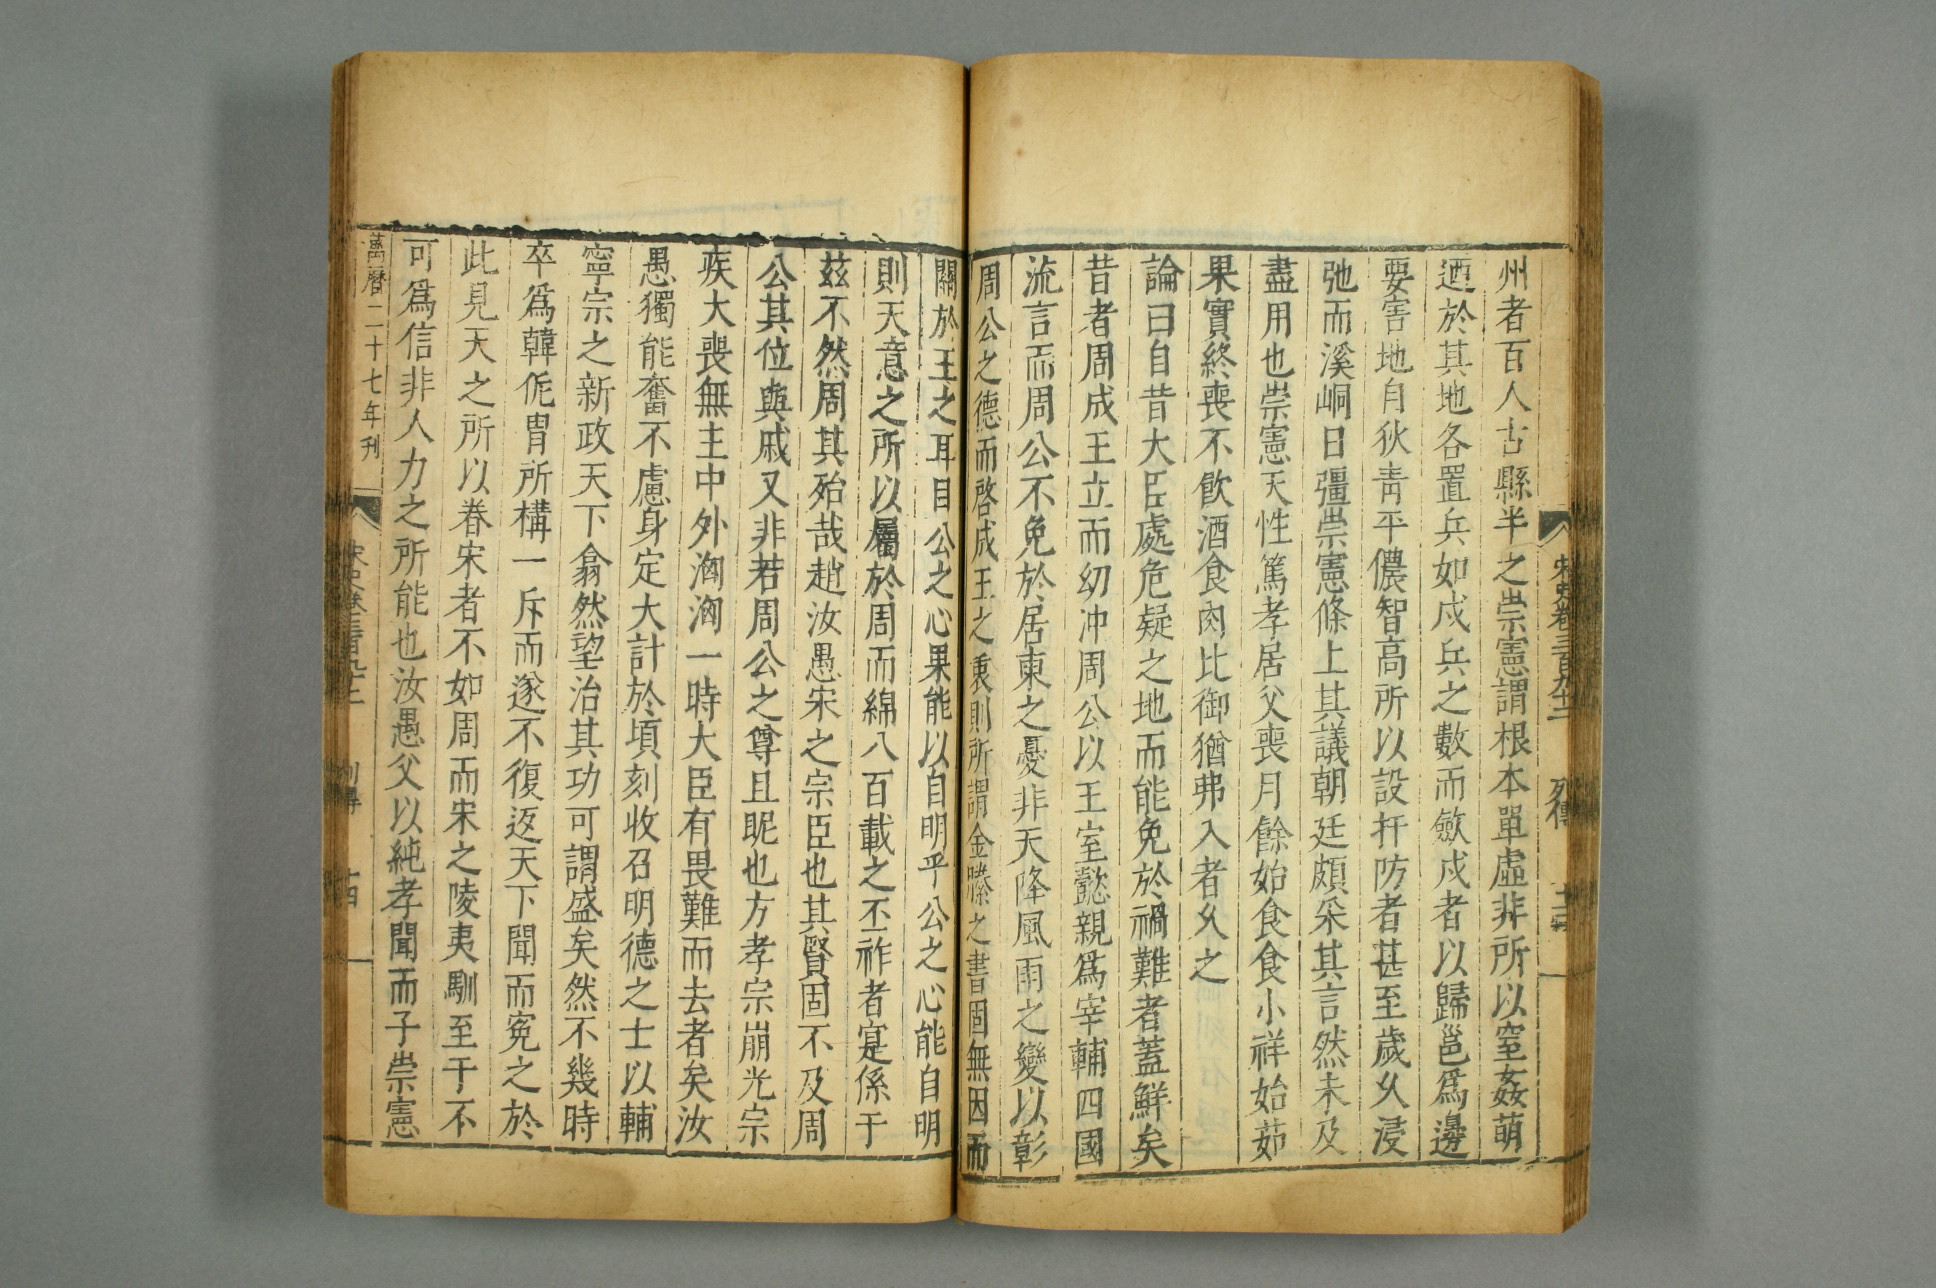 州者百人古縣半之崇憲謂根本單虛非所以窒姦萌
迺於其地各置兵如戍兵之數而斂戍者以歸邕爲邊
要害地自狄青平儂智高所以設扞防者甚至歲久浸
弛而溪峒日彊崇憲條上其議朝廷頗采其言然未及
盡用也崇憲天性篤孝居父喪月餘始食食小祥始茹
果實終喪不飲酒食肉比御猶弗入者久之
論曰自昔大臣處危疑之地而能免於禍難者蓋鮮矣
昔者周成王立而幼冲周公以王室懿親爲宰輔四國
流言而周公不免於居東之憂非天降風雨之變以彰
周公之德而啓成王之衷則所謂金縢之書固無因而
關於王之耳目公之心果能以自明乎公之心能自明
則天意之所以屬於周而綿八百載之丕祚者寔係于
茲不然周其殆哉趙汝愚宋之宗臣也其賢固不及周
公其位與戚又非若周公之尊且昵也方孝宗崩光宗
疾大喪無主中外洶洶一時大臣有畏難而去者矣汝
愚獨能奮不慮身定大計於頃刻收召明德之士以輔
寧宗之新政天下翕然望治其功可謂盛矣然不幾時
卒爲韓侂胄所構一斥而遂不復返天下聞而寃之於
此見天之所以眷宋者不如周而宋之陵夷馴至于不
可爲信非人力之所能也汝愚父以純孝聞而子崇憲
萬曆二十七年刊
宋史卷三百九十二
列傳
十四